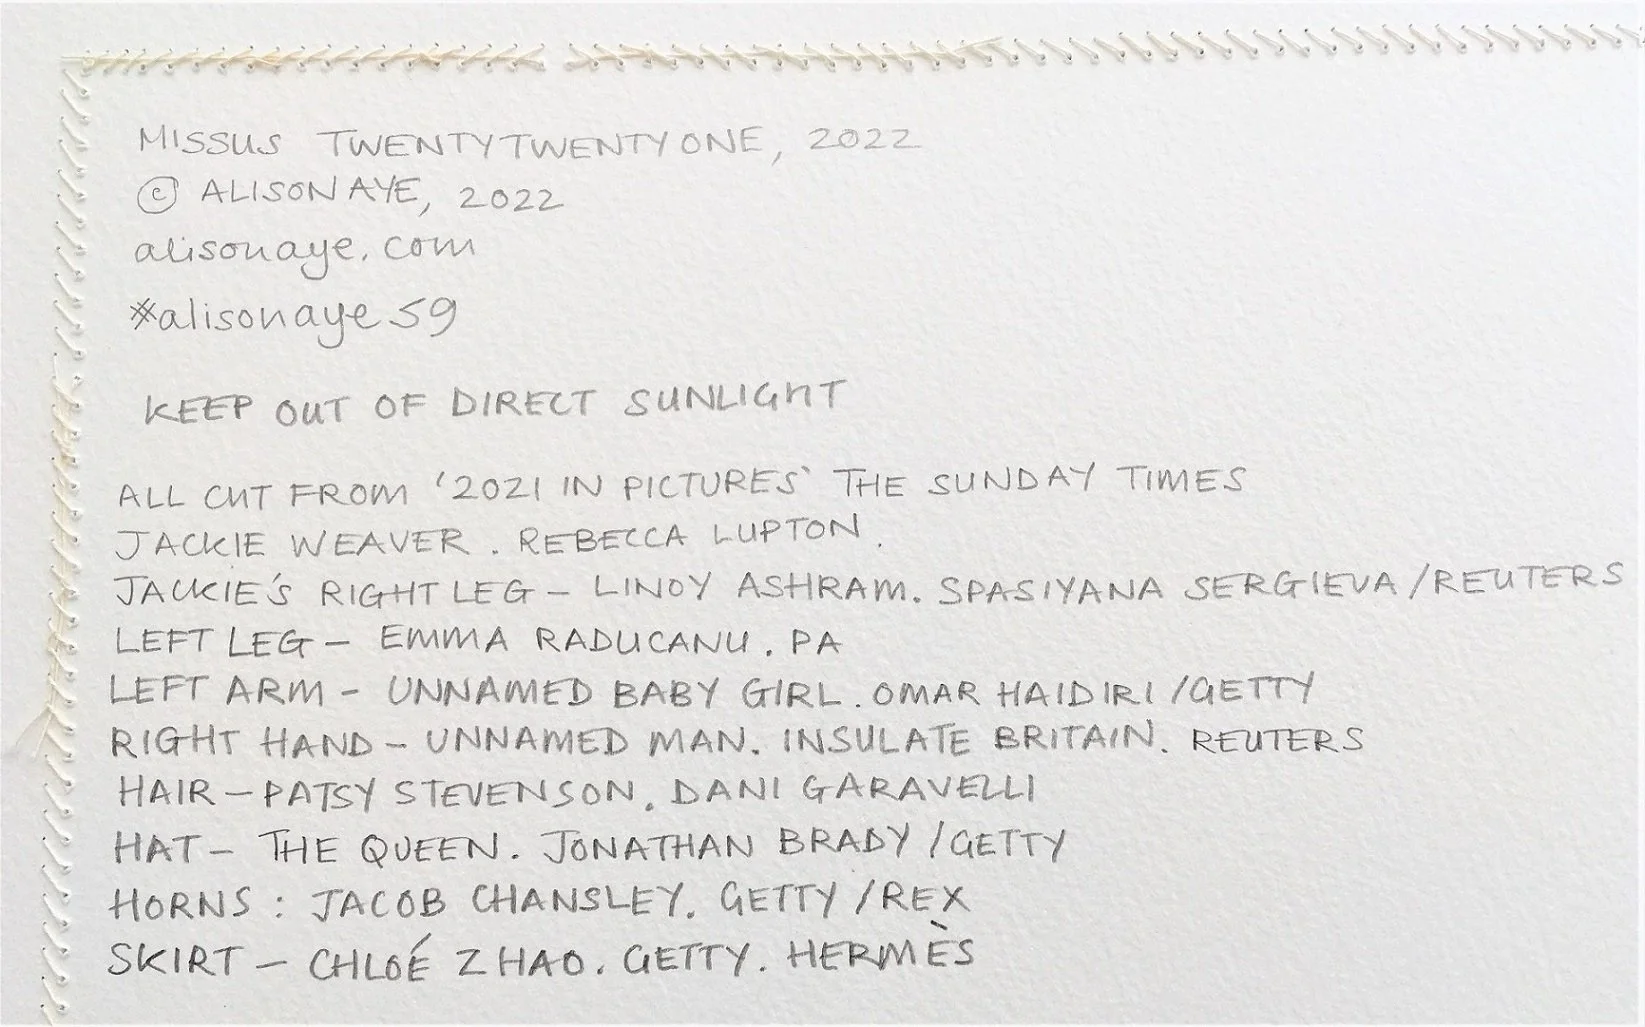 MISSUS TWENTYTWENTYONE, 2022
© ALISON AYE, 2022
alisonaye.com
#alisonaye59
KEEP OUT OF DIRECT SUNLIGHT
ALL CUT FROM '2021 IN PICTURES' THE SUNDAY TIMES
JACKIE WEAVER. REBECCA LUPTON.
JACKIE'S RIGHT LEG - LINOY ASHRAM. SPASIYANA SERGIEVA/REUTERS
LEFT LEG - EMMA RADUCANU. PA
LEFT ARM - UNNAMED BABY GIRL. OMAR HAIDIRI/GETTY
RIGHT HAND - UNNAMED MAN. INSULATE BRITAIN. REUTERS
HAIR - PATSY STEVENSON. DANI GARAVELLI
HAT - THE QUEEN. JONATHAN BRADY/GETTY
HORNS: JACOB CHANSLEY. GETTY/REX
SKIRT - CHLOÉ ZHAO. GETTY. HERMÈS